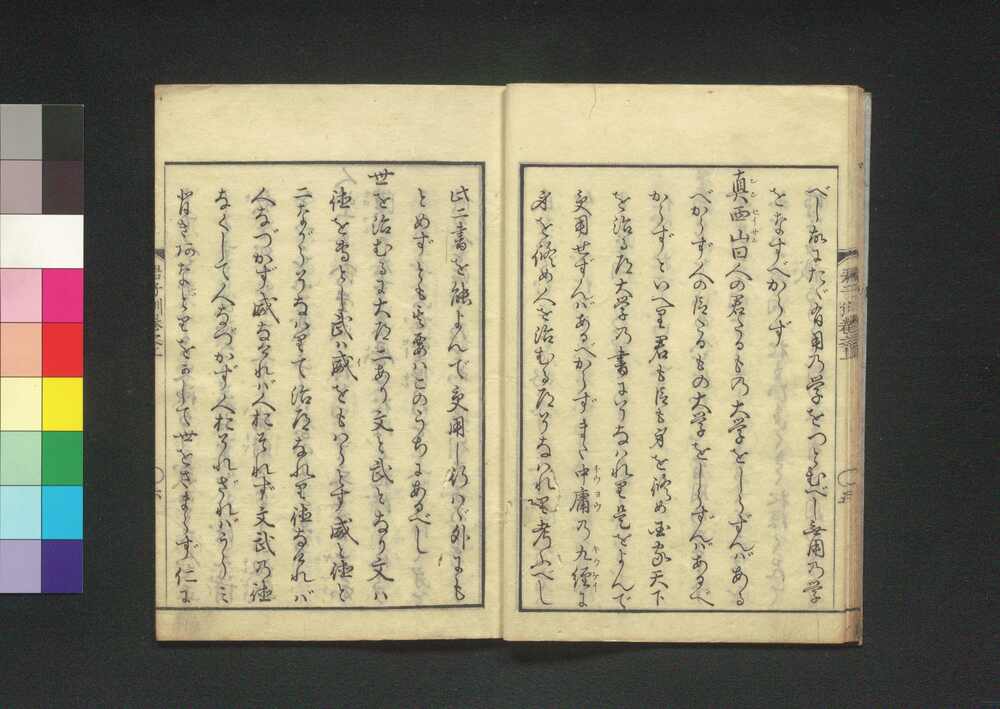 べし故にたゞ有用の学をつとむべし無用の学
をなすべからず
真西山曰人の君たるもの大学をしらずんばある
べからず人の臣たるもの大学をしらずんばあるべ
からずといへり君も臣も身を修め国家天下
を治る道大学の書にうちなはれり是をよんで
受用せずんばあるべからずまた中庸の九経は
身を修め人を治むる道そなはれり考ふべし
シン セイサン
チウヨウ
キウケイ
此二書を能よんで受用し行はゞ外にも
とめずとも其要はこのうちにあるべし
世を治むるに大道二あり文と武となり文は
徳を尚とし武は威をもはらとす威と徳と
二ながらそなはりて治道なれり徳なければ
人なづかず威なければ人おそれず文武の徳
なくして人なづかず人おそれざればうらみ
背きあなどりをなして世をさまらず仁に
五
六